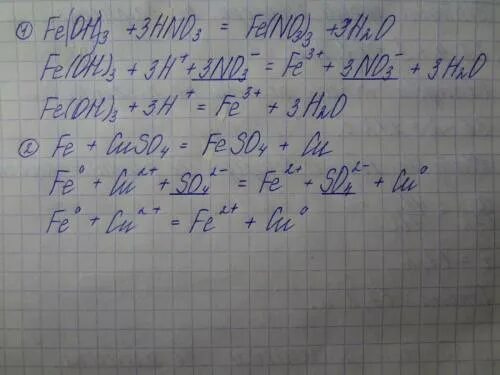 ① Fe(OH)₃ + 3HNO₃ = Fe(NO₃)₃ + 3H₂O
Fe(OH)₃ + 3H⁺ + 3NO₃⁻ = Fe³⁺ + 3NO₃⁻ + 3H₂O
Fe(OH)₃ + 3H⁺ = Fe³⁺ + 3H₂O
② Fe + CuSO₄ = FeSO₄ + Cu
Fe⁰ + Cu²⁺ + SO₄²⁻ = Fe²⁺ + SO₄²⁻ + Cu⁰
Fe⁰ + Cu²⁺ = Fe²⁺ + Cu⁰